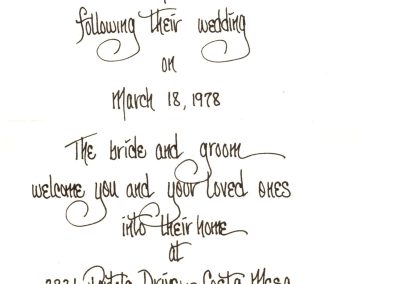 following their wedding
on
March 18, 1978
The bride and groom
welcome you and your loved ones
into their home
at
Drive Costa Mesa